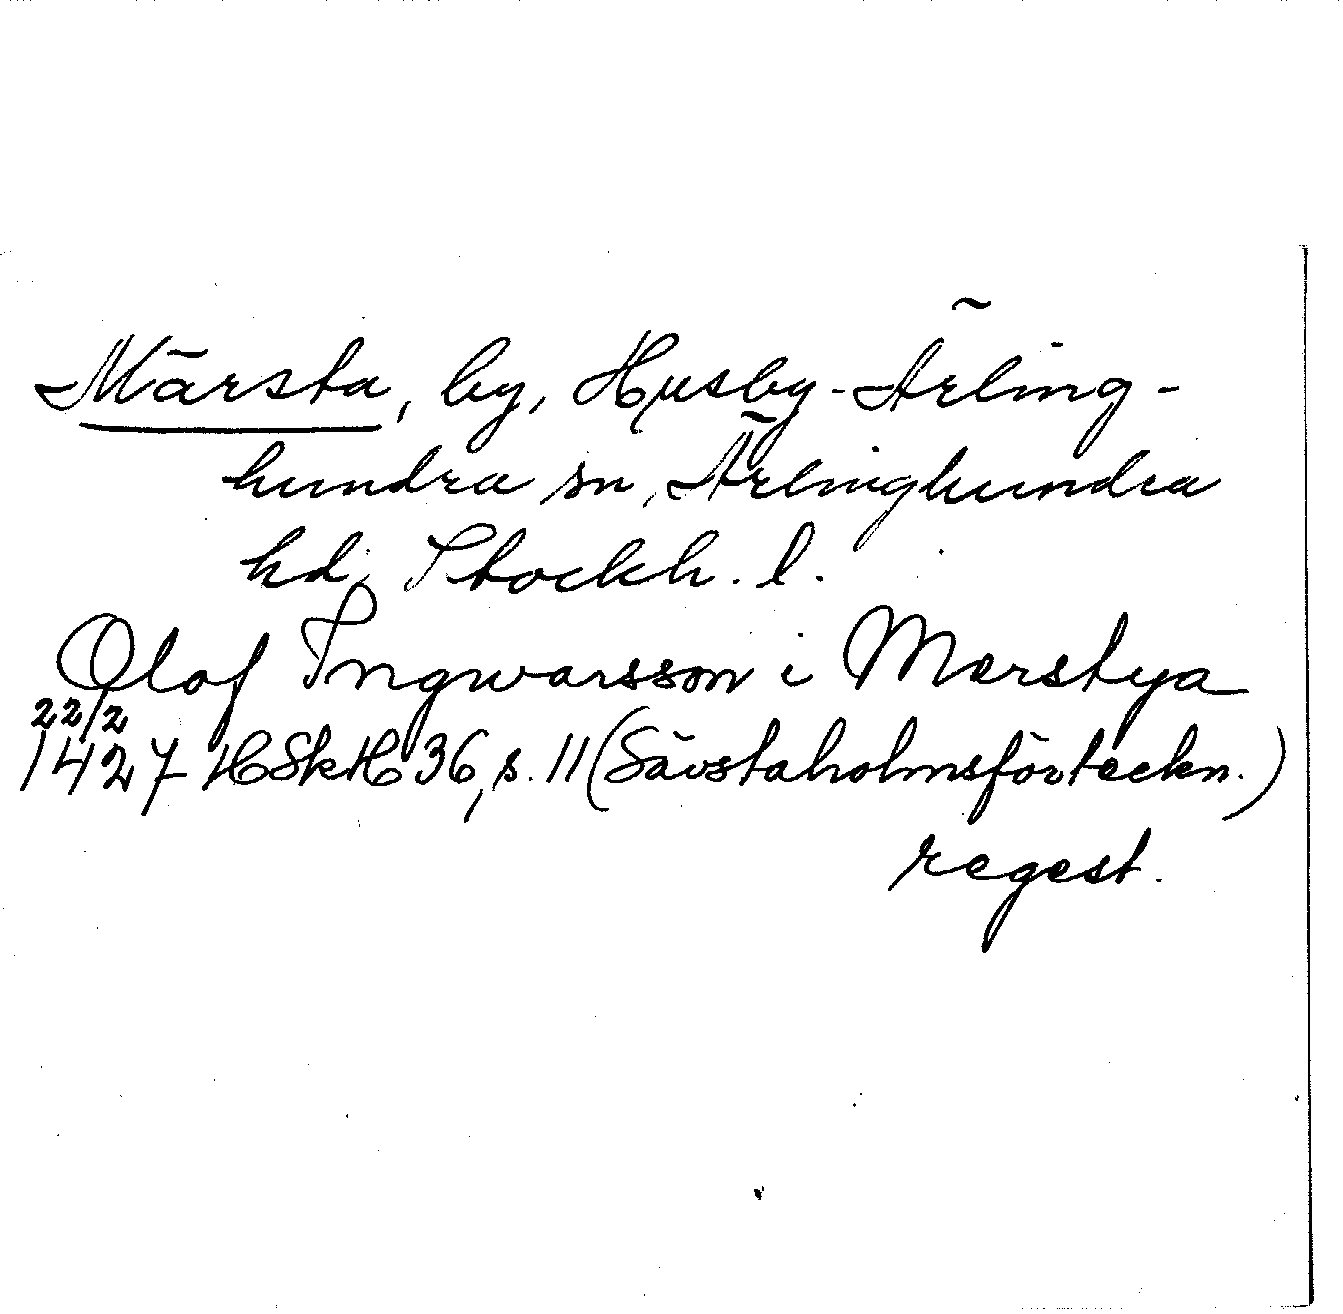 Märsta, by, Husby-Ärling-
hundra sn, Ärlinghundra
hd, Stockh. l.
Olof Ingwarsson i Merstya
22/2
1427 HSkH 36, s. 11 (Sävstaholmsförteckn.)
regest.